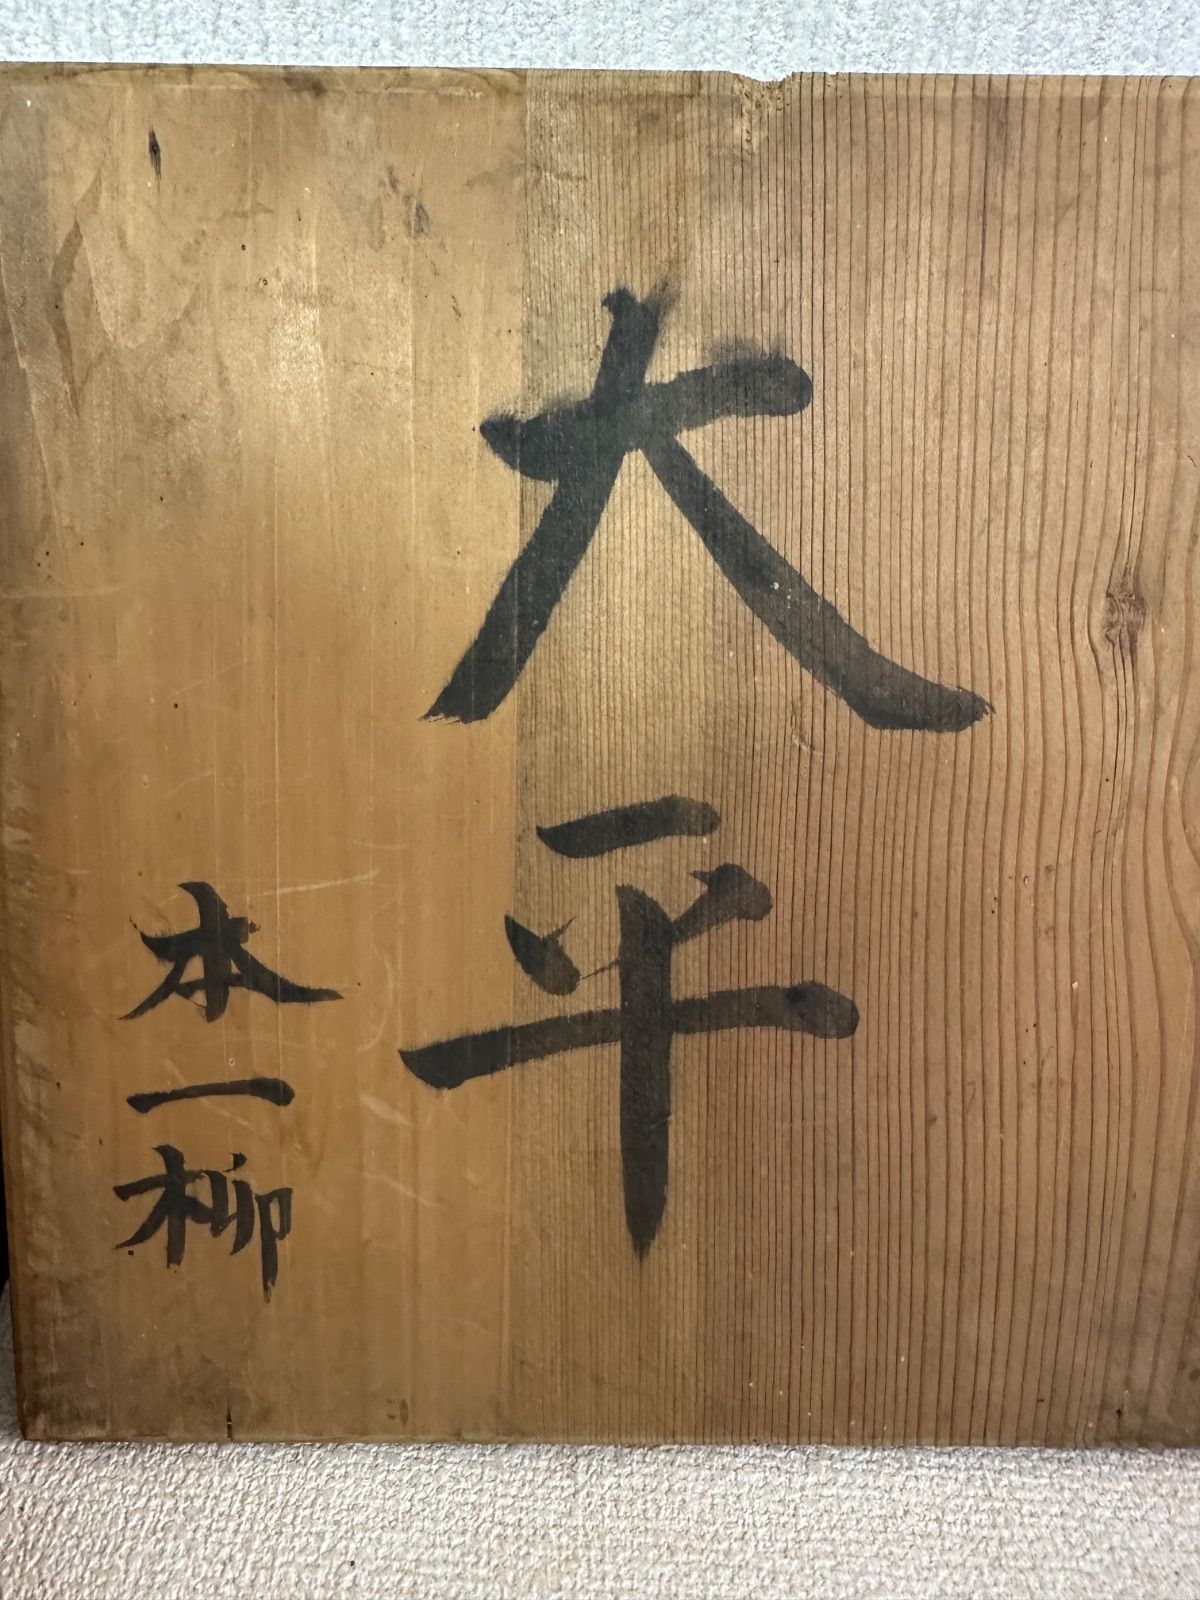 大平
本一柳